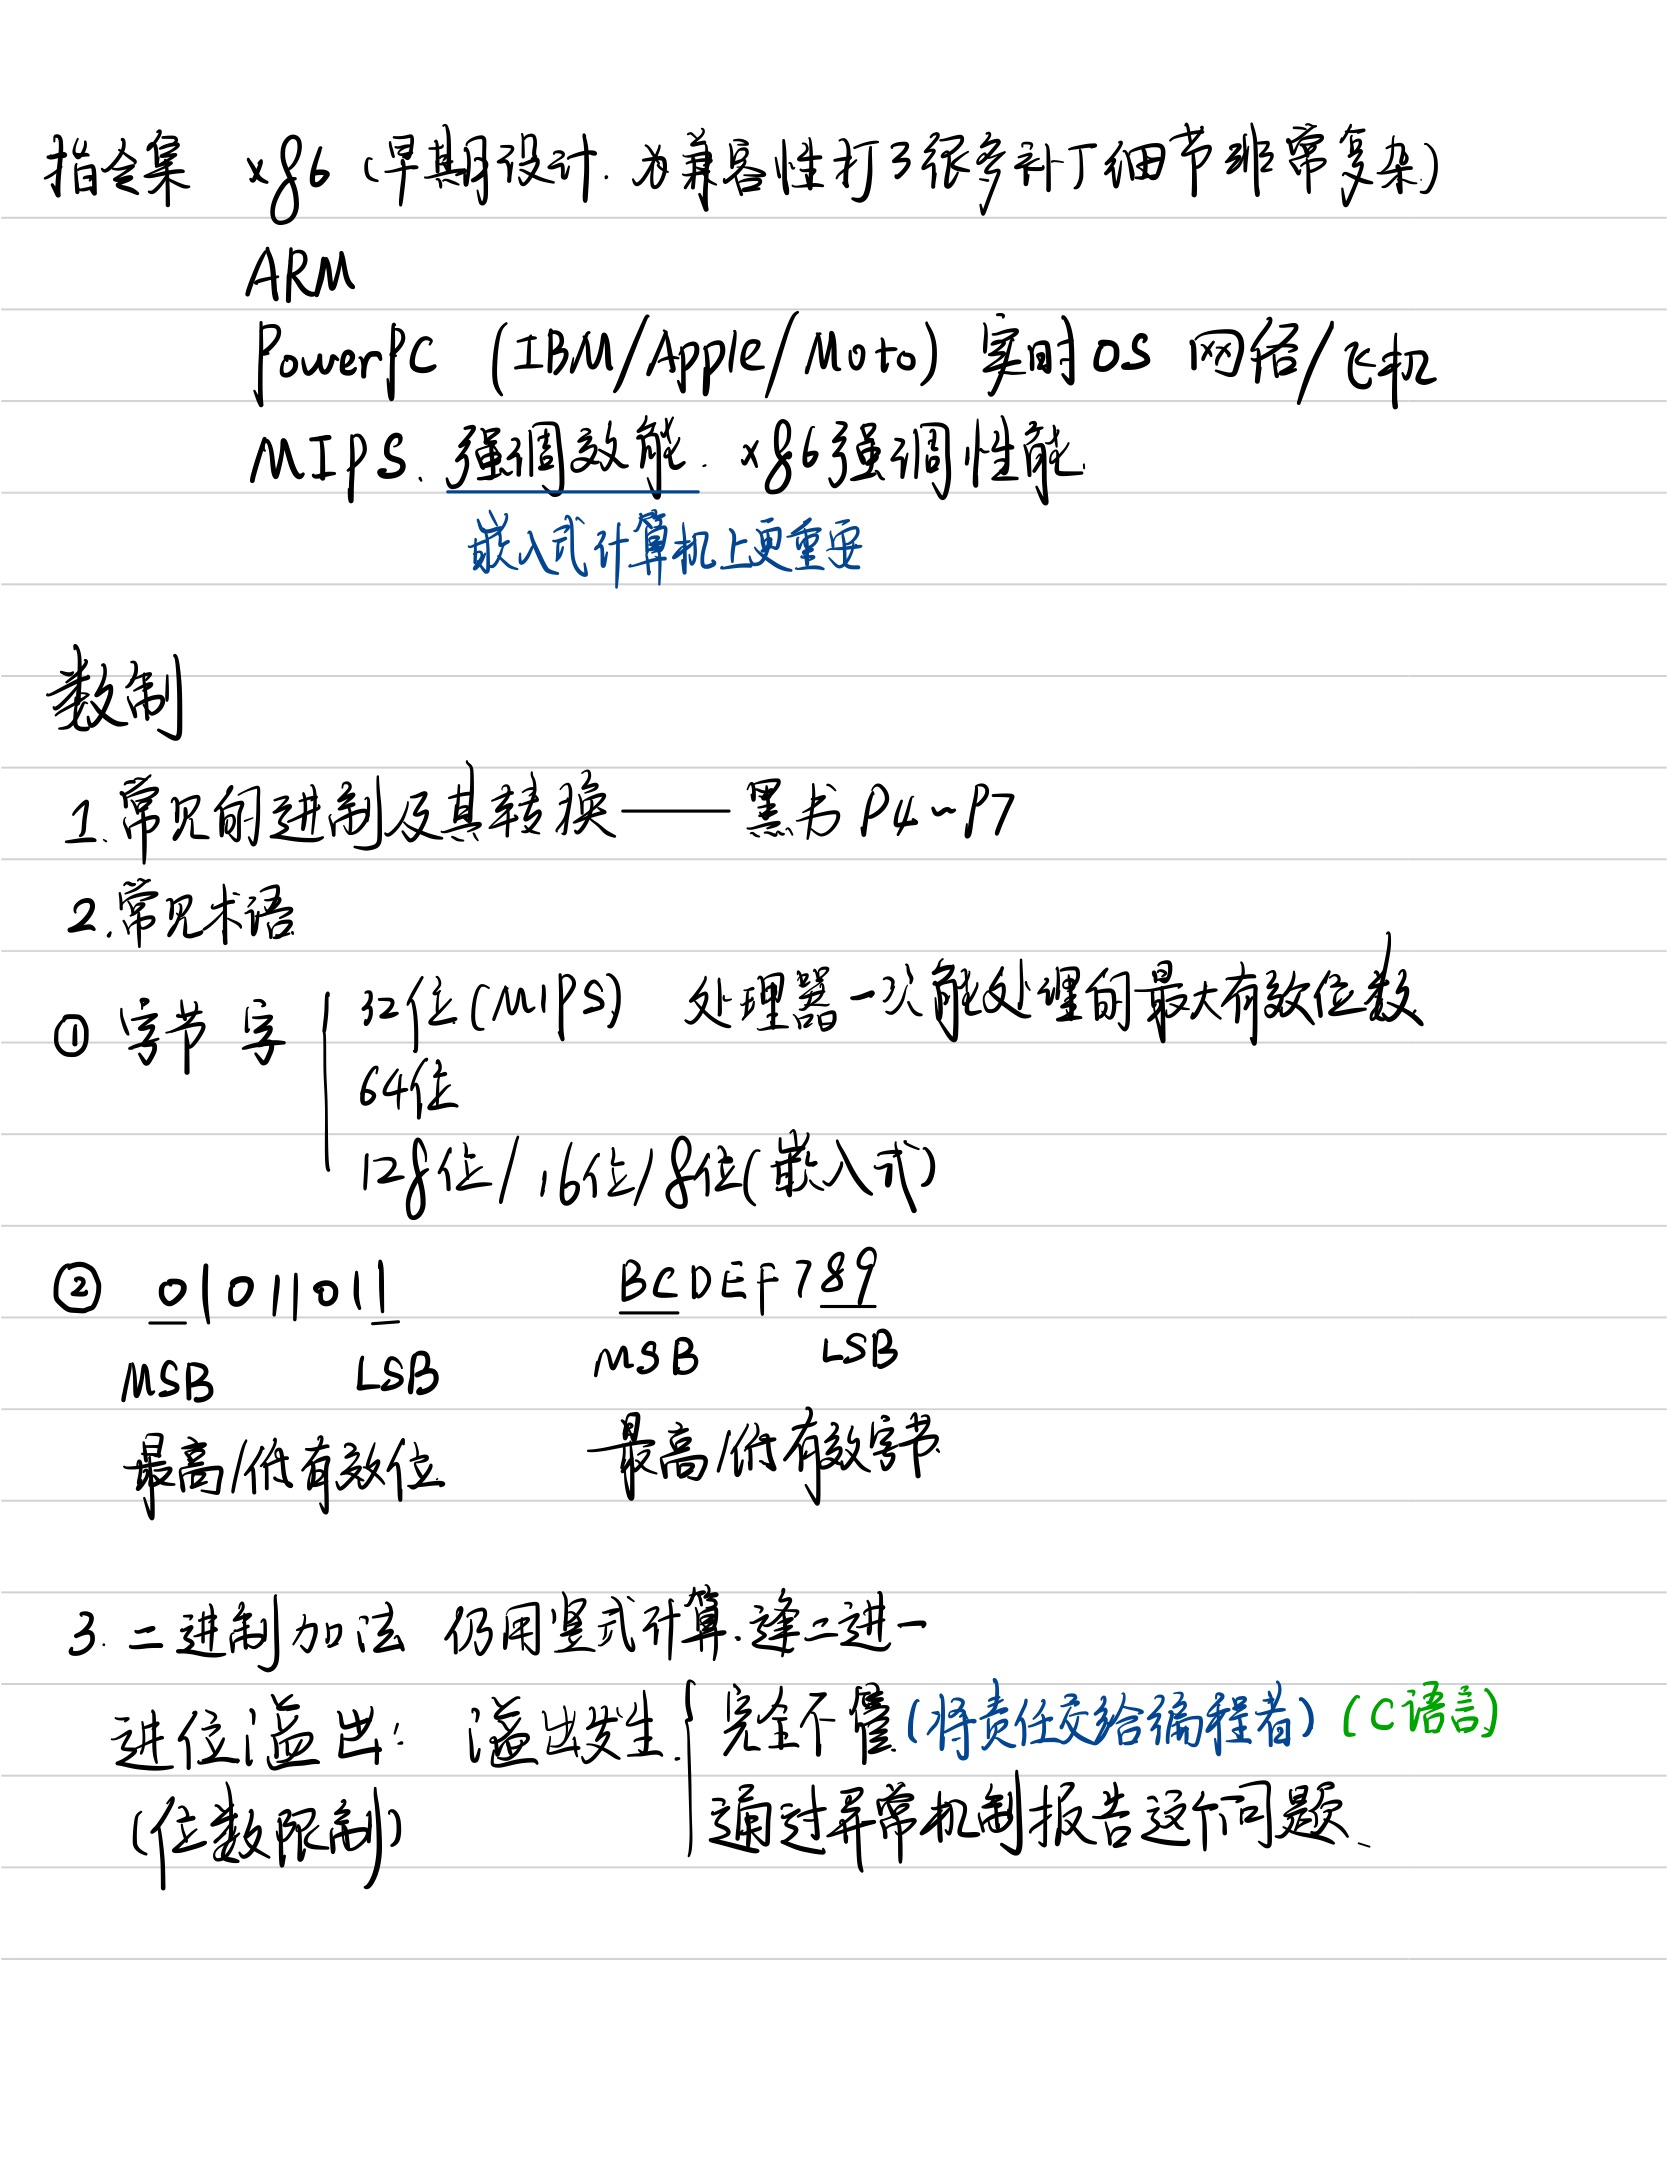 指令集 x86 (早期设计. 为兼容性打了很多补丁细节非常复杂)
ARM
PowerPC (IBM/Apple/Moto) 实时OS 网络/飞机
MIPS. 强调效能. x86强调性能.
嵌入式计算机上更重要
数制
1.常见的进制及其转换——黑书 P4~P7
2.常见术语
① 字节 字 32位(MIPS) 处理器一次能处理的最大有效位数.
64位
128位/16位/8位(嵌入式)
② 01011011 BCDEF789
MSB LSB MSB LSB
最高/低有效位 最高/低有效字节
3.二进制加法 仍用竖式计算.逢二进一
进位溢出: 溢出发生. 完全不管(将责任交给编程者)(C语言)
(位数限制) 通过异常机制报告这个问题.